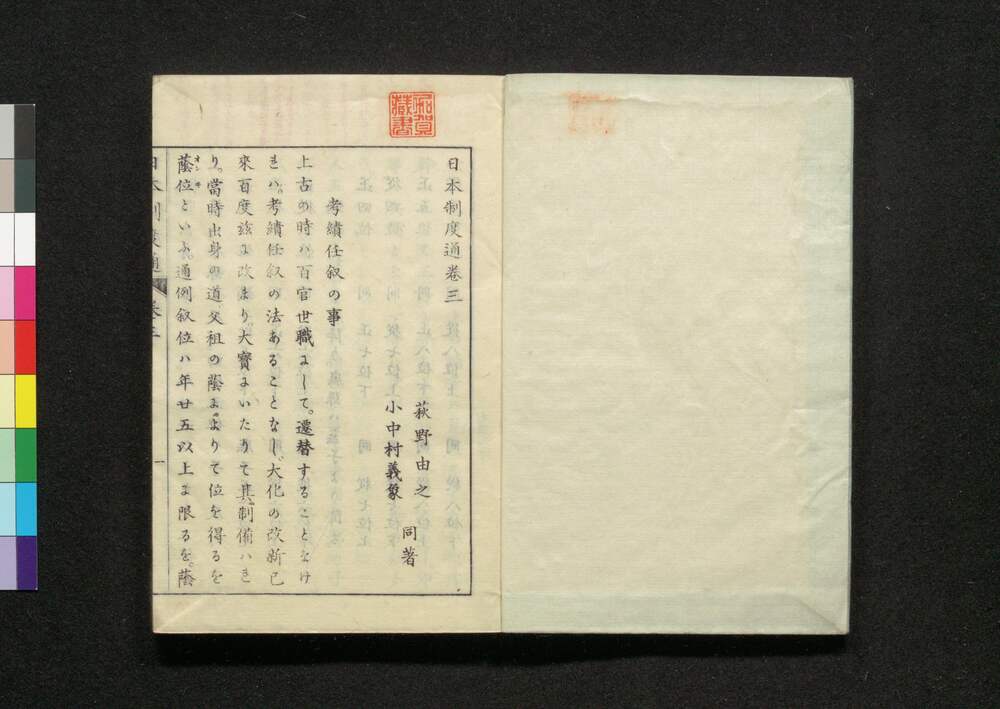 日本制度通卷三
萩野由之
小中村義象
同著
考績任叙の事
上古の時ハ百官世職にして。遷替することなけ
れバ。考績任叙の法あることなし。大化の改新已
來百度茲に改まり。大寶にいたりて其制備ハれ
り。當時出身の道父祖の蔭によりて位を得るを
蔭位といふ。通例叙位ハ年廿五以上に限るを。蔭
オンヰ
日本制度通
卷三
一
加賀
藏書